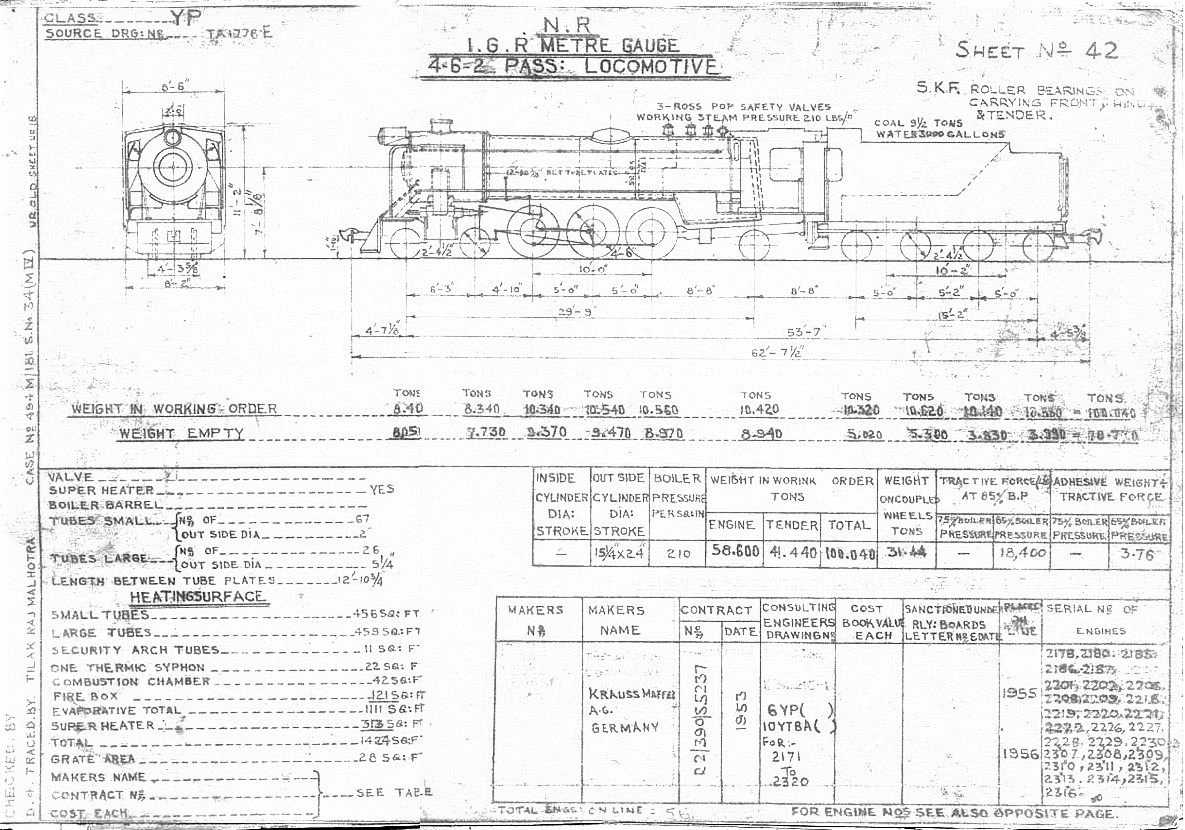 CLASS YP
SOURCE DRG: Nº TA1776 E
N.R
I.G.R METRE GAUGE
4-6-2 PASS: LOCOMOTIVE
SHEET Nº 42
S.K.F. ROLLER BEARINGS ON
CARRYING FRONT, HIND
& TENDER.
3-ROSS POP SAFETY VALVES
WORKING STEAM PRESSURE 210 LBS/□"
COAL 9½ TONS
WATER 3000 GALLONS
BET TUBE PLATES
2'-0"
11'-2"
4'-3⅜"
8'-2"
2'-4½"
4'-6"
2'-4½"
10'-0"
10'-2"
6'-3" 4'-10" 5'-0" 5'-0" 8'-8" 8'-8" 5'-0" 5'-2" 5'-0"
29'-9"
15'-2"
4'-7⅛" 53'-7"
62'-7½"
TONS TONS TONS TONS TONS TONS TONS TONS TONS TONS TONS
WEIGHT IN WORKING ORDER 8.340 10.340 10.540 10.560 10.420 10.320 10.620 10.140 = 100.040
WEIGHT EMPTY 7.730 9.370 9.470 8.970 8.940 5.020 5.300
VALVE
SUPER HEATER YES
BOILER BARREL
TUBES SMALL Nº OF 67
OUT SIDE DIA 2"
TUBES LARGE Nº OF 26
OUT SIDE DIA 5¼"
LENGTH BETWEEN TUBE PLATES 12'-10¾"
HEATING SURFACE
SMALL TUBES 456 SQ: FT
LARGE TUBES 459 SQ: FT
SECURITY ARCH TUBES 11 SQ: F
ONE THERMIC SYPHON 22 SQ: F
COMBUSTION CHAMBER 42 SQ: F
FIRE BOX 121 SQ: FT
EVAPORATIVE TOTAL 1111 SQ: FT
SUPER HEATER 313 SQ: FT
TOTAL 1424 SQ: F
GRATE AREA 28 SQ: F
MAKERS NAME
CONTRACT Nº SEE TABLE
COST EACH
INSIDE CYLINDER DIA: STROKE
OUT SIDE CYLINDER DIA: STROKE
BOILER PRESSURE PER SQ IN
WEIGHT IN WORINK ORDER TONS
ENGINE TENDER TOTAL
WEIGHT ONCOUPLED WHEELS TONS
TRACTIVE FORCE LB AT 85% B.P
75% BOILER PRESSURE 85% BOILER PRESSURE
ADHESIVE WEIGHT ÷ TRACTIVE FORCE
75% BOILER PRESSURE 85% BOILER PRESSURE
— 15¼"x24" 210 58.600 41.440 100.040 31.44 — 18,400 — 3.76
MAKERS Nº
MAKERS NAME
CONTRACT
Nº DATE
CONSULTING ENGINEERS DRAWING Nº
COST BOOK VALUE EACH
SANCTIONED UNDER RLY: BOARDS LETTER Nº & DATE
PLACED ON LINE
SERIAL Nº OF ENGINES
KRAUSS MAFFEI
A.G.
GERMANY
1953
6YP( )
10YTBA( )
FOR:-
2171
TO
2320
1955
1956
2178, 2180. 2185.
2186. 2187.
2201, 2202, 2206,
2208, 2209, 2218,
2219, 2220, 2221,
2222, 2226, 2227,
2228, 2229. 2230
2307, 2308, 2309,
2310, 2311, 2312,
2313. 2314, 2315,
2316
TOTAL ENGS: ON LINE =
FOR ENGINE NOS SEE ALSO OPPOSITE PAGE.
CASE Nº 494 M/181 S.Nº 34 (M IV)
TRACED BY. TILAK RAJ MALHOTRA
CHECKED BY